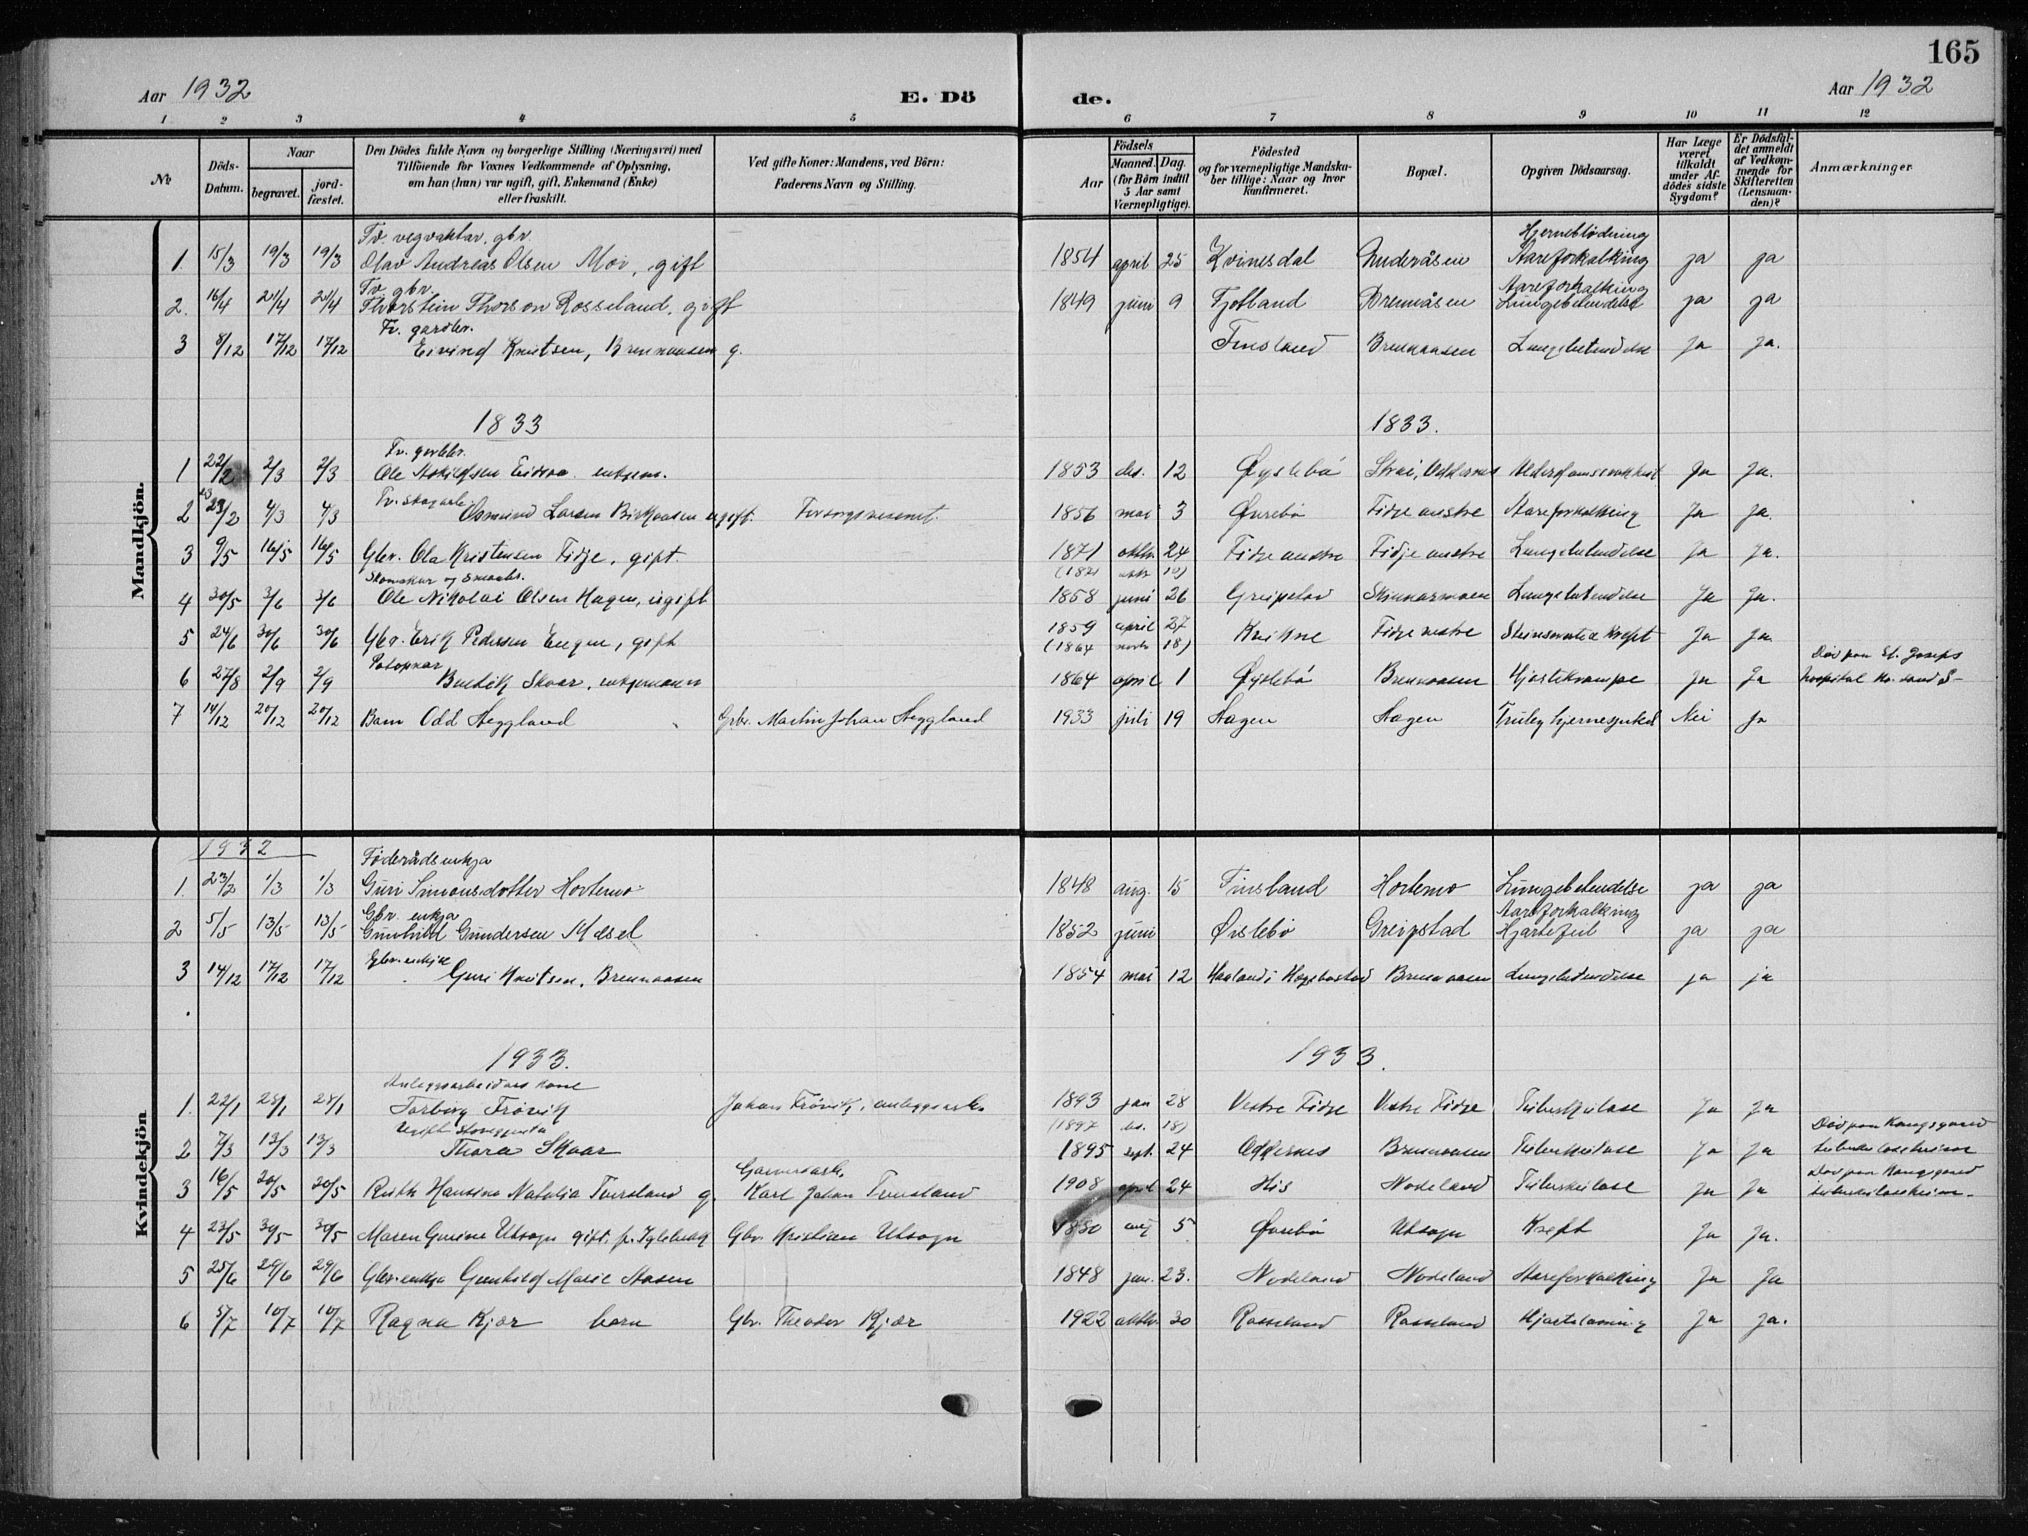 165
Aar 1932
E. Dö
de.
Aar 1932
1 2 3 4 5
6 7 8 9 10 11 12
№
Döds-Datum.
Naar
begravet.
jord-fæstet.
Den Dödes fulde Navn og borgerlige Stilling (Næringsvei) med
Tilföiende for Voxnes Vedkommende af Oplysning,
om han (hun) var ugift, gift, Enkemand (Enke)
eller fraskilt.
Ved gifte Koner: Mandens, ved Börn:
Faderens Navn og Stilling.
Aar
Födsels
Maaned. Dag.
(for Börn indtil
5 Aar samt
Værnepligtige).
Födested
og for værnepligtige Mandska-
ber tillige: Naar og hvor
konfirmeret.
Bopæl.
Opgiven Dödsaarsag.
Har Læge
været
tilkaldt
under Af-
dödes sidste
Sygdom?
Er Dödsfal-
det anmeldt
af Vedkom-
mende for
Skifteretten
(Lensman-
den)?
Anmærkninger
Mandkjön.
Fv. vegvaktar, gbr. Hjerneblödning
1. 15/3 19/3 19/3 Olav Andreas Olsen Moi, gift 1854 april 25 Kvinesdal Aareforkalking ja ja
Fv. gbr. Aareforkalking
2. 16/4 21/4 21/4 Thorstein Thorson Rosseland, gift 1849 juni 9 Fjotland Brennåsen Lungebetendelse ja ja
Fv. gardbr.
3 8/12 17/12 17/12 Eivind Knutsen, Brennaasen g. Finsland Brennaasen Lungebetendelse Ja Ja.
1833 1833.
Fv. gardbr.
1 22/2 2/3 2/3 Ole Eidsaa enkjem. 1853 des. 12 Øyslebö Strai, Oddernes Ja Ja.
Fv. Skogarb.
2 23/2 4/3 4/3 Osmund Larsen Birkaasen ugift. Forsorgsvesenet. 1856 mai 3 Øvrebö Fidje austre Aareforkalking Ja Ja.
3 9/5 16/5 16/5 Gbr. Ola Kristensen Fidje, gift. 1871 oktbr. 24 Fidje austre Fidje austre Lungebetendelse Ja Ja.
Skomakar og Smaabr.
4 30/5 3/6 3/6 Ole Nikolai Olsen Hagen, ugift 1858 juni 26 Greipstad Lungebetendelse Ja Ja.
5 24/6 30/6 30/6 Gbr. Erik Pedersen Engen, gift 1859 april 27 Kvikne Fidje vestre Ja Ja
(1864 18)
Död paa St. Josephs
6 27/8 2/9 2/9 Skaar, enkjemann 1864 april 1 Øyslebö Brennaasen Hjartekrampe Ja Ja hospital Kr.sand S-
7 14/12 20/12 20/12 Barn Odd Heggland Gbr. Martin Johan Heggland 1933 juli 19 Hagen Hagen Nei Ja
Kvindekjön
1932
Föderådsenkja
1. 23/2 1/3 1/3 Guri Simonsdotter Hortemo 1848 aug. 15 Finsland Hortemo Lungebetendelse ja ja
Gbr. enkja Aareforkalking
2 5/5 13/5 13/5 Gunhild Gundersen Mæsel 1852 juni Øislebö Greipstad Hjartefeil ja ja
Gbr. enkje
3 14/12 17/12 17/12 Guri Knutsen, Brennaasen 1854 mai 12 Haaland i Hægebostad Brennaasen Lungebetendelse ja ja
1933. 1933.
Anleggsarbeidars kone
1. 22/1 28/1 28/1 Torborg Frövik Johan Frövik, anleggsarb. 1893 jan 28 Vestre Fidje Vestre Fidje Tuberkulose Ja Ja
(1897 18)
Ugift Död paa Kongsgaard
2 7/3 13/3 13/3 Thora Skaar 1895 sept. 24 Oddernes Brennaasen Tuberkulose Ja Ja tuberkuloseheim
Död paa Kongsgaard
3 16/5 20/5 20/5 Ruth Hansine Natalia Finsland g. Karl Johan Finsland 1908 april 24 His Nodeland Tuberkulose Ja Ja tuberkuloseheim.
4 23/5 30/5 30/5 Maren Gurine Utsogn gift. f. Iglebæk Gbr. Kristian Utsogn 1850 aug 5 Øvrebö Utsogn Kreft Ja Ja.
5 25/6 29/6 29/6 Gbr. enkja Gunhild Marie Aasen 1848 jan. 23. Nodeland Nodeland Aareforkalking Ja Ja
6 5/7 10/7 10/7 Ragna Kjær barn Gbr. Theodor Kjær 1922 oktbr. 30 Rosseland Rosseland Hjartelamning Ja Ja.